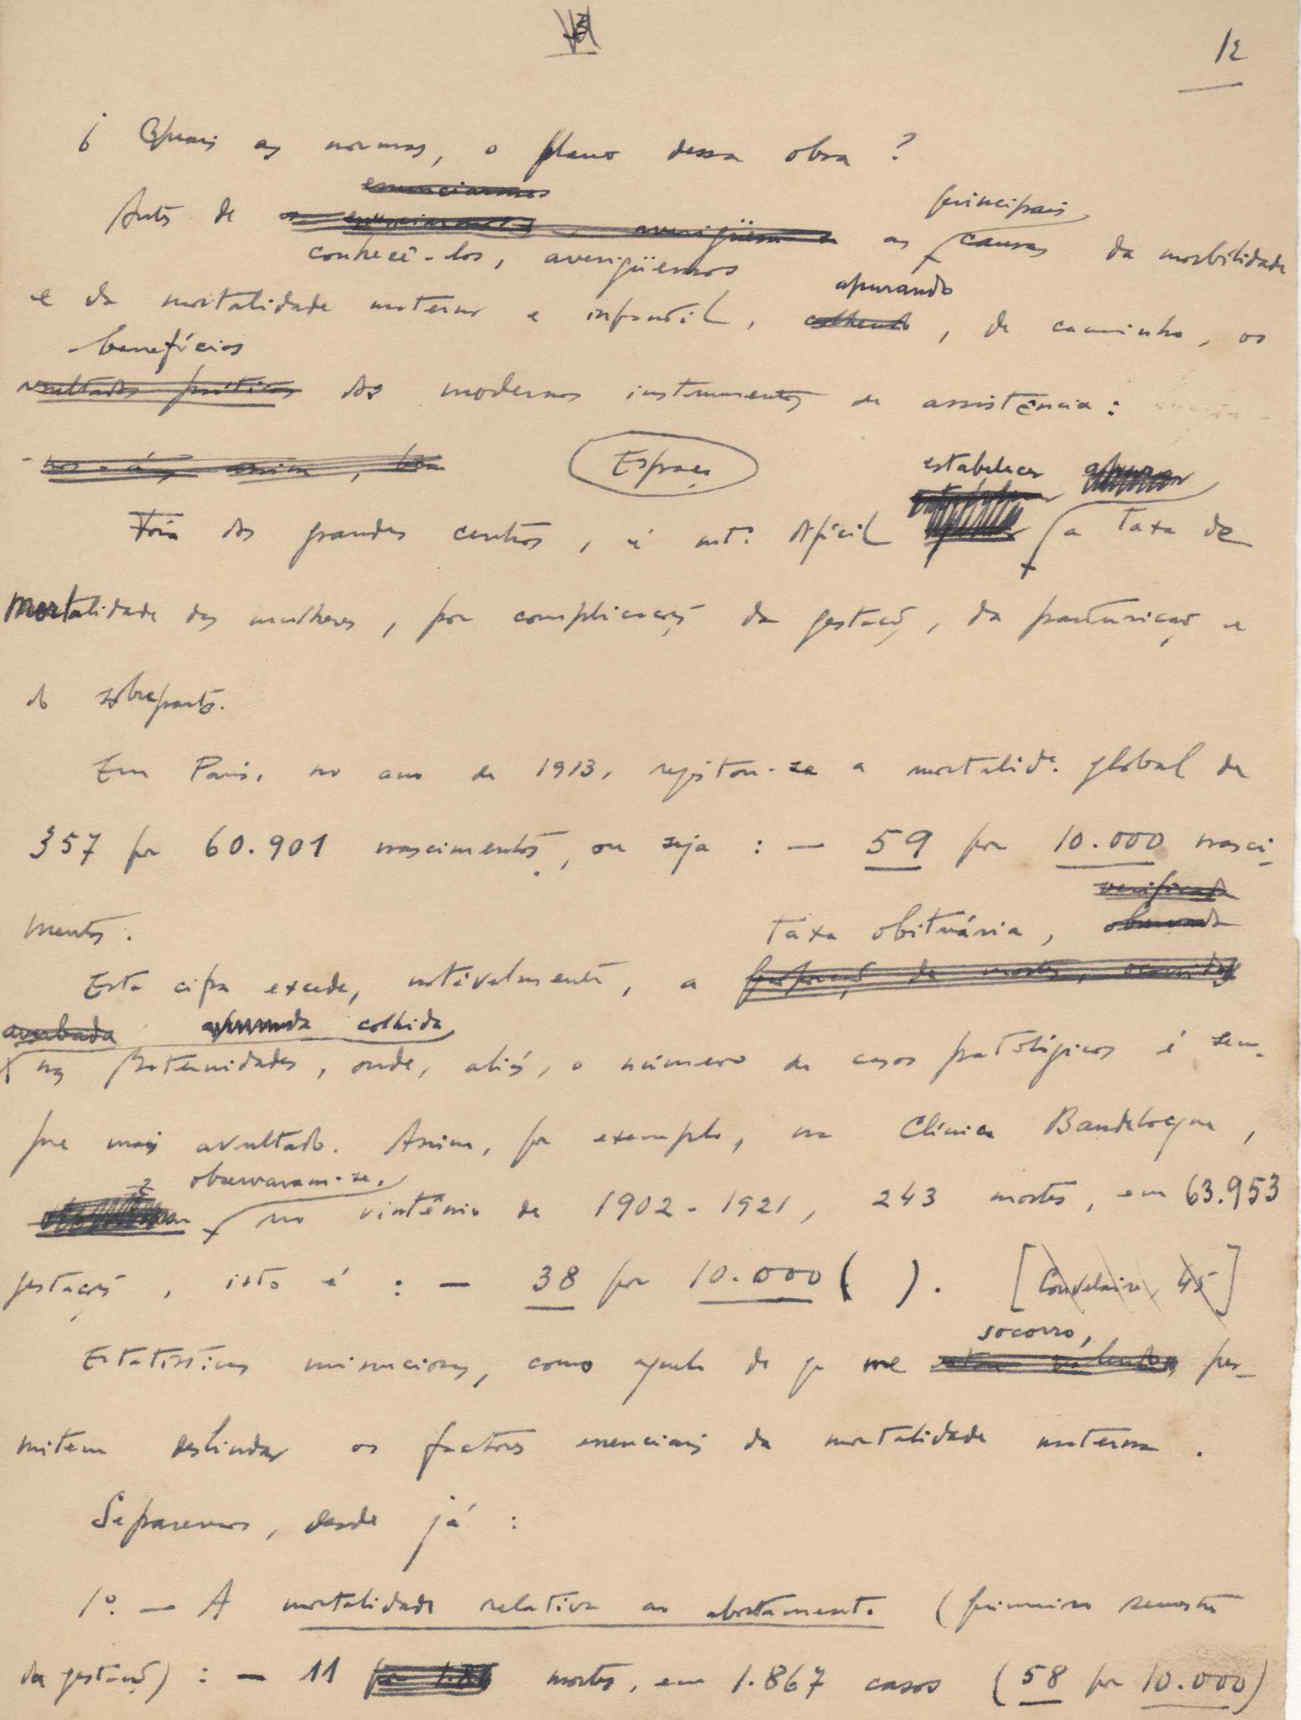 12
¿ Quais as normas, o plano dessa obra ?
enunciarmos
principais
Antes de as causas da morbilidade
conhecê-los, averigüemos
apurando
e da mortalidade materna e infantil, colhendo, de caminho, os
benefícios
resultados práticos dos modernos instrumentos de assistência :
Espaço
estabelecer apurar
Fóra dos grandes centros, é mtº difícil a taxa de
mortalidade das mulheres, por complicações da gestação, da parturição e
do sobreparto.
Em Paris, no ano de 1913, registou-se a mortalide. global de
357 por 60.901 nascimentos, ou seja : — 59 por 10.000 nasci-
mentos.
verificada
taxa obituária, observada
Esta cifra excede, notávelmente, a proporção de mortes, ocorridas
averbada apurada colhida
nas Maternidades, onde, aliás, o número de casos patológicos é sem-
pre mais avultado. Assim, por exemplo, na Clínica Baudelocque,
observaram-se,
no vintênio de 1902-1921, 243 mortes, em 63.953
gestações, isto é : — 38 por 10.000 ( ). [Couvelaire, 45]
socorro,
Estatísticas minuciosas, como aquela de q me per-
mitem deslindar os factores essenciais da mortalidade materna.
Separemos, desde já :
1º. — A mortalidade relativa ao abortamento (primeiro semestre
da gestação) : — 11 por 1.86 mortes, em 1.867 casos (58 por 10.000)